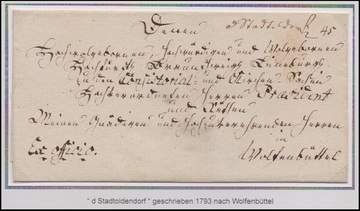 Denen d Stadtoldendorf 45
Hochwolgebornen, Hochwürdigen und Wolgebornen
Hochfürstl. Braunschweig Lüneburg.
zu den Consistorial und Kirchen Sachen
Hochverordneten Herren Präsident
und Räthen
Meinen Gnädigen und Hochzuverehrenden Herren
in
Ex officio. Wolfenbüttel
" d Stadtoldendorf " geschrieben 1793 nach Wolfenbüttel